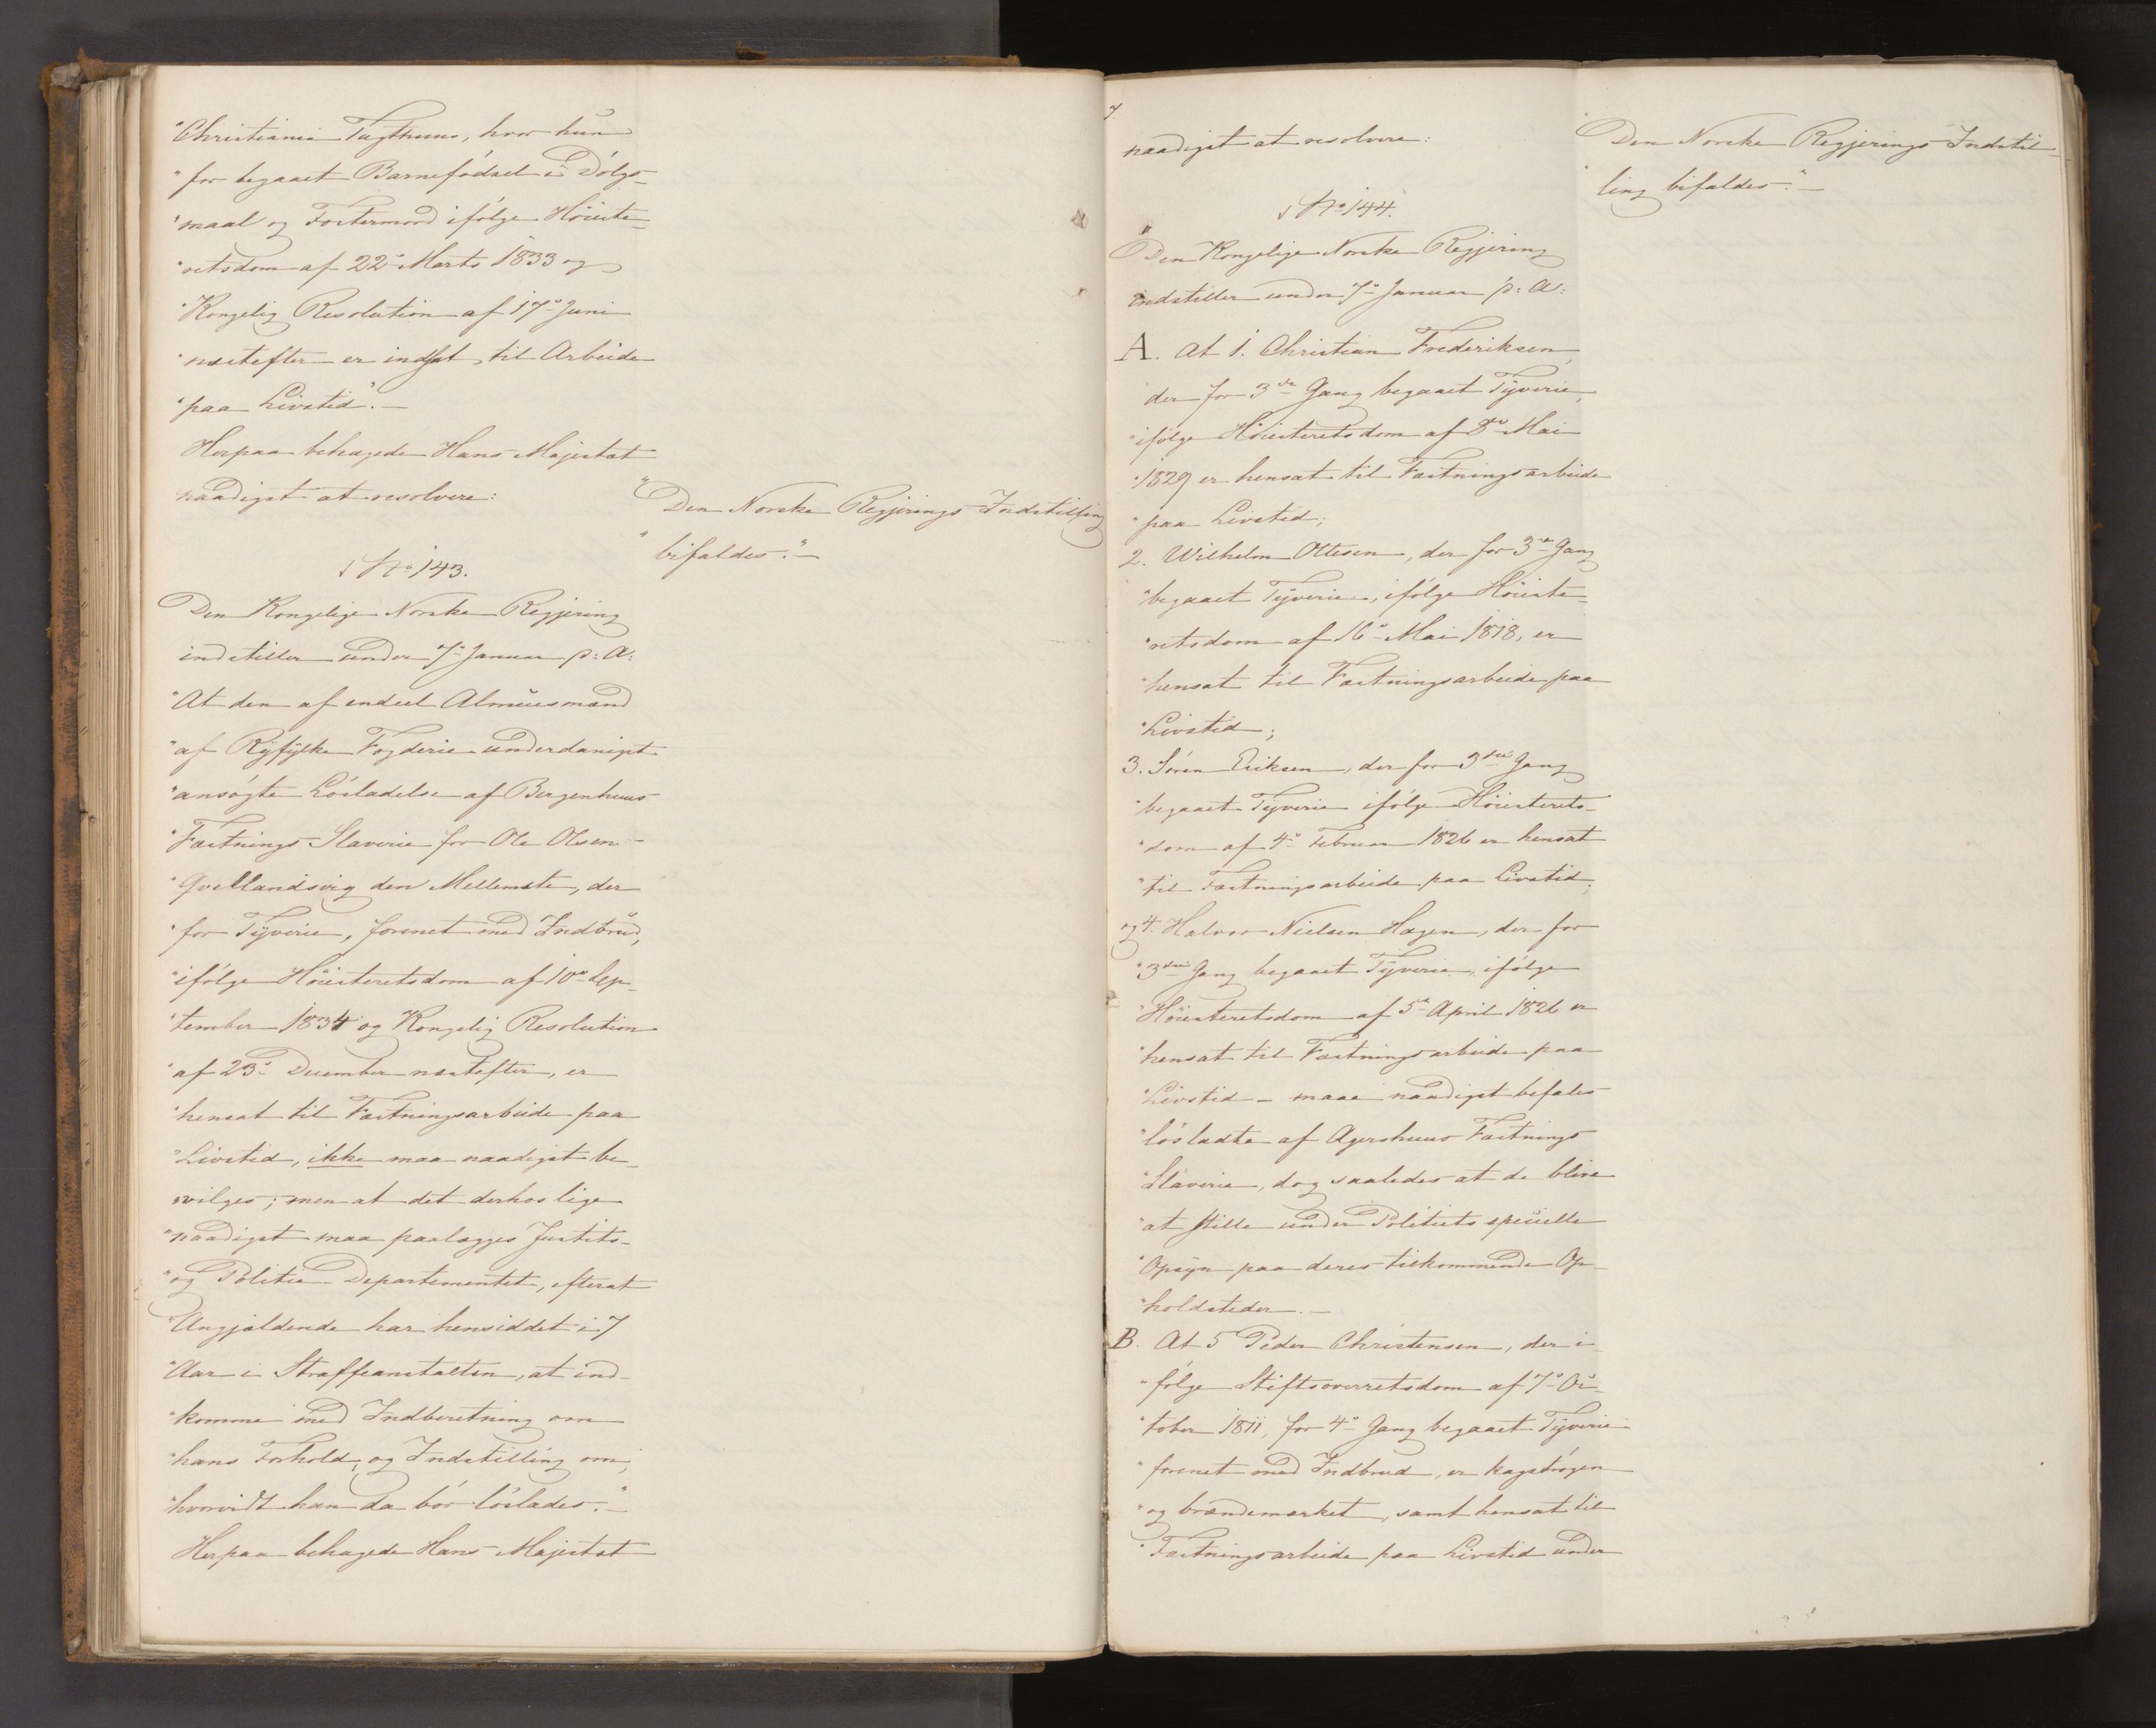 "Christiania Tugthuus, hvor hun
"for begaaet Barnefödsel i Dölgs-
"maal og Fostermord ifölge Höieste-
"retsdom af 22de Marts 1833 og
"Kongelig Resolution af 17de Juni
"næstefter er indsat til Arbeide
"paa Livstid".-
Herpaa behagede Hans Majestæt
naadigst at resolvere:
"Den Norske Regjerings Indstilling
"bifaldes."-
No 143.
Den Kongelige Norske Regjering
indstiller under 7de Januar p: A:
"At den af endeel Almuesmænd
"af Ryfylke Fogderie underdanigst
"ansögte Lösladelse af Bergenhuus
"Fæstnings Slaverie for Ole Olsen
"Qvellandsvig den Mellemste, der
"for Tyverie, forenet med Indbrud,
"ifölge Höiesteretsdom af 10de Sep-
"tember 1834 og Kongelig Resolution
"af 23de December næstefter, er
"hensat til Fæstningsarbeide paa
"Livstid, ikke maa naadigst be-
"vilges; men at det derhos lige
"naadigst maa paalægges Justits-
"og Politie-Departementet, efterat
"Angjældende har hensiddet i 7
"Aar i Straffeanstalten, at ind-
"komme med Indberetning om
"hans Forhold, og Indstilling om,
"hvorvidt han da bör löslades."-
Herpaa behagede Hans Majestæt
naadigst at resolvere:
"Den Norske Regjerings Indstil-
"ling bifaldes."-
No 144.
Den Kongelige Norske Regjering
indstiller under 7de Januar p: A:
A. At 1. Christian Frederiksen,
der for 3de Gang begaaet Tyverie,
"ifölge Höiesteretsdom af 8de Mai
"1829 er hensat til Fæstningsarbeide
"paa Livstid;
2. Wilhelm Ottesen, der for 3de Gang
"begaaet Tyverie, ifölge Höieste-
"retsdom af 16de Mai 1818, er
"hensat til Fæstningsarbeide paa
"Livstid;
3. Sören Eriksen, der for 3die Gang
"begaaet Tyverie ifölge Höiesterets-
"dom af 4de Februar 1826 er hensat
"til Fæstningsarbeide paa Livstid;
og 4. Halvor Nielsen Hagen, der for
"3die Gang begaaet Tyverie, ifölge
"Höiesteretsdom af 5te April 1826 er
"hensat til Fæstningsarbeide paa
"Livstid - maae naadigst befales
"lösladte af Agershuus Fæstnings
"Slaverie, dog saaledes at de blive
"at stille under Politiets specielle
"Opsyn paa deres tilkommende Op-
"holdsteder.-
B. At 5 Peder Christensen, der i-
"fölge Stiftsoverretsdom af 7de Oc-
"tober 1811, for 4de Gang begaaet Tyverie
"forenet med Indbrud, er kagströgen
"og brændemærket, samt hensat til
"Fæstningsarbeide paa Livstid under